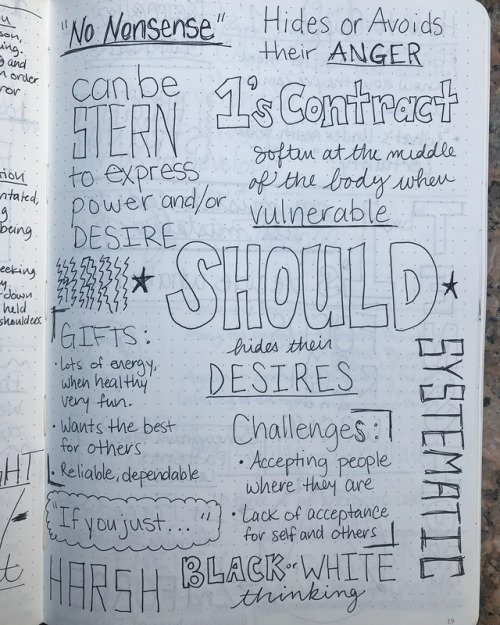 "No Nonsense"
Hides or Avoids
their ANGER
can be
STERN
to express
power and/or
DESIRE
1's Contract
soften at the middle
of the body when
vulnerable
SHOULD
hides their
DESIRES
GIFTS:
• Lots of energy,
when healthy
very fun.
• Wants the best
for others
• Reliable, dependable
"If you just... "
HARSH
Challenges:
• Accepting people
where they are
• Lack of acceptance
for self and others
BLACK or WHITE
thinking
SYSTEMATIC
19
and
order
being.
down
held
shoulders